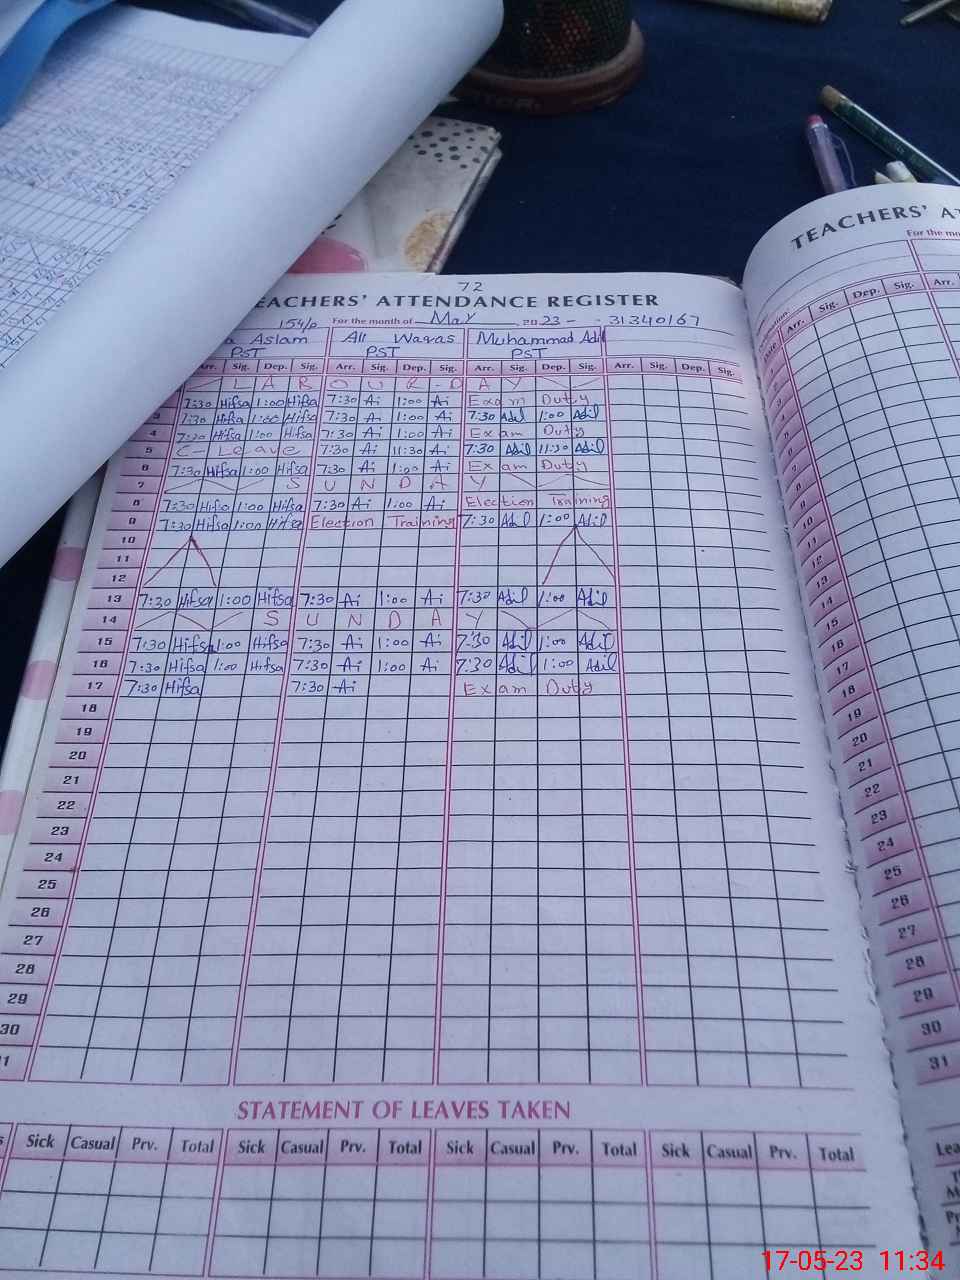 72
TEACHERS' ATTENDANCE REGISTER
154/P For the month of May 2023 - - 31340167
a Aslam Ali Waras Muhammad Adil
PST PST PST
Arr. Sig. Dep. Sig. Arr. Sig. Dep. Sig. Arr. Sig. Dep. Sig. Arr. Sig. Dep. Sig.
LABOUR-DAY
7:30 Hifsa 1:00 Hifsa 7:30 Ai 1:00 Ai Exam Duty
3 7:30 Hifsa 1:00 Hifsa 7:30 Ai 1:00 Ai 7:30 Adil 1:00 Adil
4 7:30 Hifsa 1:00 Hifsa 7:30 Ai 1:00 Ai Exam Duty
5 C-Leave 7:30 Ai 11:30 Ai 7:30 Adil 11:30 Adil
6 7:30 Hifsa 1:00 Hifsa 7:30 Ai 1:00 Ai Exam Duty
7 SUNDAY
8 7:30 Hifsa 1:00 Hifsa 7:30 Ai 1:00 Ai Election Training
9 7:30 Hifsa 1:00 Hifsa Election Training 7:30 Adil 1:00 Adil
10
11
12
13 7:30 Hifsa 1:00 Hifsa 7:30 Ai 1:00 Ai 7:30 Adil 1:00 Adil
14 SUNDAY
15 7:30 Hifsa 1:00 Hifsa 7:30 Ai 1:00 Ai 7:30 Adil 1:00 Adil
16 7:30 Hifsa 1:00 Hifsa 7:30 Ai 1:00 Ai 7:30 Adil 1:00 Adil
17 7:30 Hifsa 7:30 Ai Exam Duty
18
19
20
21
22
23
24
25
26
27
28
29
30
1
STATEMENT OF LEAVES TAKEN
s Sick Casual Prv. Total Sick Casual Prv. Total Sick Casual Prv. Total Sick Casual Prv. Total
TEACHERS' AT
For the mo
Date Arr. Sig. Dep. Sig. Arr.
1
2
3
4
5
6
7
8
9
10
11
12
13
14
15
16
17
18
19
20
21
22
23
24
25
26
27
28
29
30
31
Lea
17-05-23 11:34